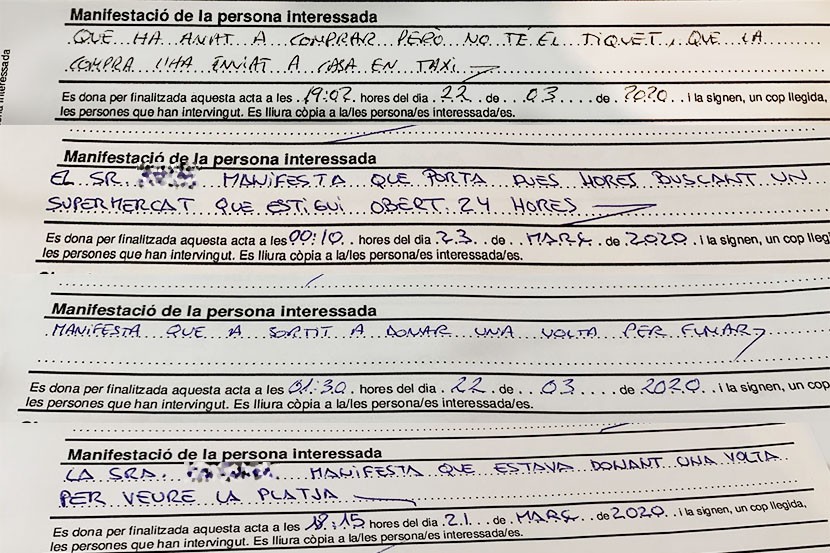 interessada
Manifestació de la persona interessada
QUE HA ANAT A COMPRAR PERÒ NO TÉ EL TIQUET, QUE LA
COMPRA L'HA ENVIAT A CASA EN TAXI.
Es dona per finalitzada aquesta acta a les 19:02 hores del dia 22 de 03 de 2020. i la signen, un cop llegida,
les persones que han intervingut. Es lliura còpia a la/les persona/es interessada/es.
Manifestació de la persona interessada
EL SR. MANIFESTA QUE PORTA DUES HORES BUSCANT UN
SUPERMERCAT QUE ESTIGUI OBERT 24 HORES
Es dona per finalitzada aquesta acta a les 00:10 hores del dia 23 de MARÇ de 2020 i la signen, un cop lleg
les persones que han intervingut. Es lliura còpia a la/les persona/es interessada/es.
Manifestació de la persona interessada
MANIFESTA QUE A SORTIT A DONAR UNA VOLTA PER FUMAR
Es dona per finalitzada aquesta acta a les 01:30 hores del dia 22 de 03 de 2020 i la signen, un cop
les persones que han intervingut. Es lliura còpia a la/les persona/es interessada/es.
Manifestació de la persona interessada
LA SRA. MANIFESTA QUE ESTAVA DONANT UNA VOLTA
PER VEURE LA PLATJA
Es dona per finalitzada aquesta acta a les 18:15 hores del dia 21 de MARÇ de 2020 i la signen, un cop llegida,
les persones que han intervingut. Es lliura còpia a la/les persona/es interessada/es.